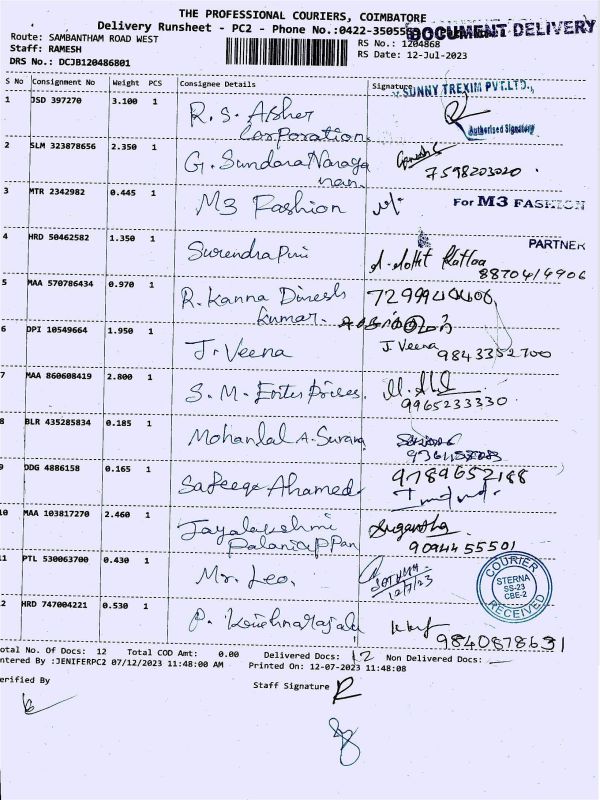 THE PROFESSIONAL COURIERS, COIMBATORE
Delivery Runsheet - PC2 - Phone No.:0422-35055
DOCUMENT DELIVERY
Route: SAMBANTHAM ROAD WEST
RS No.: 1204868
Staff: RAMESH
RS Date: 12-Jul-2023
DRS No.: DCJB120486801
S No Consignment No Weight PCS Consignee Details Signature
SUNNY TREXIM PVT.LTD.,
1 JSD 397270 3.100 1 R.S. Asher
Corporation.
Authorised Signatory
2 SLM 323878656 2.350 1 G. Sundara Naraya
nan. Ganesh C
7598203020
3 MTR 2342982 0.445 1 M3 Fashion
For M3 FASHION
PARTNER
4 HRD 50462582 1.350 1 Surendra Puri
8870414906
5 MAA 570786434 0.970 1 R. Kanna Dinesh
Kumar.
6 DPI 10549664 1.950 1 J. Veena J. Veena
9843352700
7 MAA 860608419 2.800 1 S. M. Enterprises.
9965233330
8 BLR 435285834 0.185 1 Mohanlal A. Surana
9 DDG 4886158 0.165 1 Safeeqe Ahamed 9789652188
10 MAA 103817270 2.460 1 Jayalakshmi
Palaniappan Sugantha
9094455501
11 PTL 530063700 0.430 1 Mr. Leo.
12/7/23
COURIER
STERNA
SS-23
CBE-2
RECEIVED
12 HRD 747004221 0.530 1 P. Krishnarajalu
9840878631
Total No. Of Docs: 12 Total COD Amt: 0.00 Delivered Docs: 12 Non Delivered Docs:
Entered By :JENIFERPC2 07/12/2023 11:48:00 AM Printed On: 12-07-2023 11:48:08
Verified By
Staff Signature